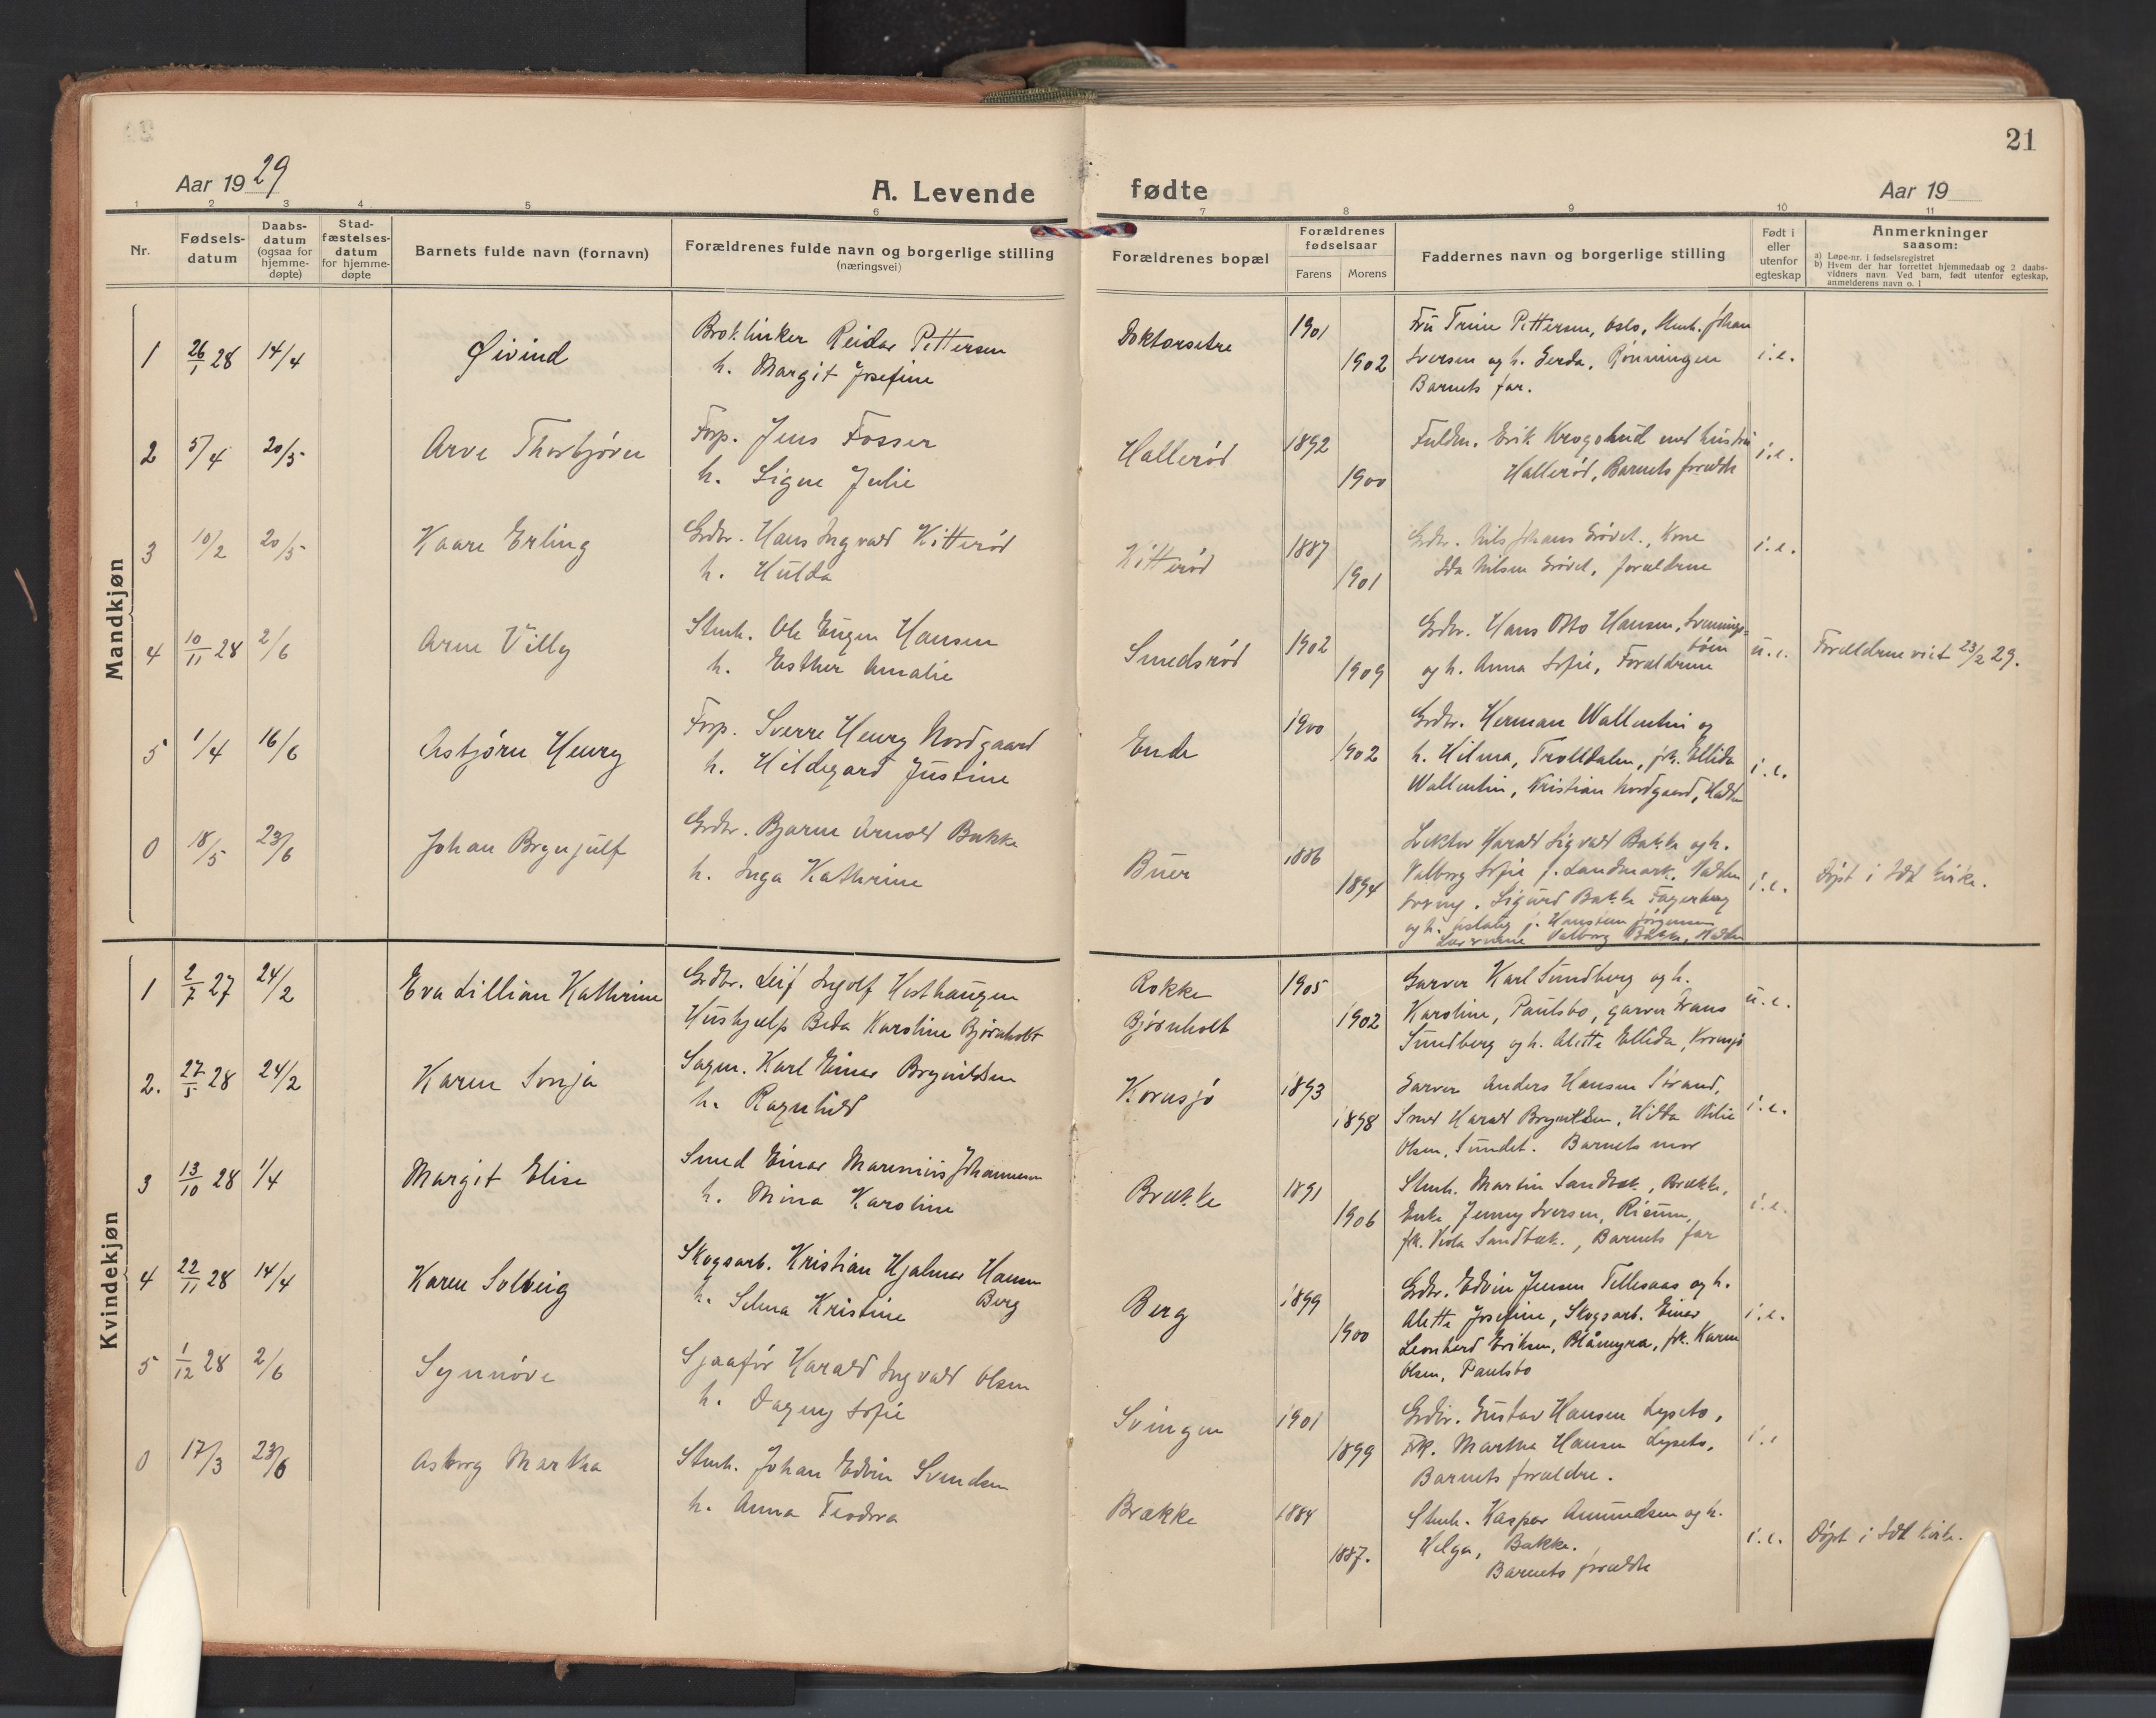 21
Aar 1929
A. Levende fødte
Aar 19
1 2 3 4 5 6 7 8 9 10 11
Nr.
Fødsels-
datum
Daabs-
datum
(ogsaa for
hjemme-
døpte)
Stad-
fæstelses-
datum
for hjemme-
døpte
Barnets fulde navn (fornavn)
Forældrenes fulde navn og borgerlige stilling
(næringsvei)
Forældrenes bopæl
Forældrenes
fødselsaar
Farens Morens
Faddernes navn og borgerlige stilling
Født i
eller
utenfor
egteskap
Anmerkninger
saasom:
a) Løpe-nr. i fødselsregistret
b) Hvem der har forrettet hjemmedaab og 2 daabs-
vidners navn. Ved barn, født utenfor egteskap,
anmelderens navn o. l
Mandkjøn
1 26/1 28 14/4 Øivind
Reidar Pettersen
h. Margit Josefine
Doktorsetre 1901 1902
Fru Trine Pettersen, Oslo, Stenh. Johan
Iversen og h. Gerda, Rønningen
Barnets far.
i.e.
2 5/4 20/5 Arve Thorbjørn
Forp. Jens Fosser
h. Signe Julie
Hallerød 1892 1900
Fuldm. Erik Krogshud med hustru
Hallerød, Barnets foreldre
i.e.
3 10/2 20/5 Kaare Erling
Grdbr. Hans Ingvald Kitterød
h. Hulda
Kitterød 1887 1901
Grdbr. Nils Johans Grövet., Kone
Ida Nilsen Grövet, foreldrene
i.e.
4 10/11 28 2/6 Arne Villy
Stenh. Ole Eugen Hansen
h. Esther Amalie
Smedsrød 1902 1909
Grdbr. Hans Otto Hansen,
og h. Anna Sofie, Foreldrene
u.e.
Foreldrene viet 23/2 29.
5 1/4 16/6 Asbjørn Henry
Forp. Sverre Henry Nordgaard
h. Hildegard Justine
Ende 1900 1902
Grdbr. Herman Wallentin og
h. Hilma, Trolldalen, frk. Ellida
Wallentin, Kristian Nordgaard, Halden
i.e.
0 18/5 23/6 Johan Brynjulf
Grdbr. Bjarne Arnold Bakke
h. Inga Kathrine
Buer 1886 1894
Lektor Harald Sigvald Bakke og h.
Valborg Sofie f. Landmark, Halden
Sigurd Bakke Fagerborg
og h. f. Hanstein Jørgensen
Lærerinne Valborg Bakke, Halden
i.e.
Döpt i Idd kirke.
Kvindekjøn
1 2/7 27 24/2 Eva Lillian Kathrine
Grdbr. Leif Ingolf Holthaugen
Hushjelp Beda Karoline Bjørnholt
Rokke
Bjørnholt
1905 1902
Garver Karl Sundberg og h.
Karoline, Paulsbo, garver Frans
Sundberg og h. Alette Ellida, Kornsjø
u.e.
2. 27/5 28 24/2 Karen Sonja
Sagm. Karl Einar Brynildsen
h. Ragnhild
Kornsjø 1893 1898
Garver Anders Hansen Strand,
Smed Harald Brynildsen, Hilda Otilie
Olsen, Sundet. Barnets mor
i.e.
3 13/10 28 1/4 Margit Elise
Smed Einar Marenius Johannesen
h. Mina Karoline
Brække 1891 1906
Stenh. Martin Sandbæk, Brække,
Enke Jenny Iversen, Risum,
frk. Viola Sandbæk., Barnets far
i.e.
4 22/11 28 14/4 Karen Solveig
Skogsarb. Kristian Hjalmar Hansen
Berg
h. Selma Kristine
Berg 1899 1900
Grdbr. Edvin Jensen Tellesaas og h.
Alette Josefine, Skogsarb. Einar
Leonhard Eriksen, Blåmyra, frk. Karen
Olsen, Paulsbo
i.e.
5 1/12 28 2/6 Synnöve
Sjaafør Harald Ingvald Olsen
h. Dagny Sofie
Svingen 1901 1899
Grdbr. Gustav Hansen Lysebo,
Frk. Martha Hansen Lysebo,
Barnets foreldre.
i.e
0 17/3 23/6 Asborg Martha
Stenh. Johan Edvin Svendsen
h. Anna Teodora
Brække 1884 1887.
Stenh. Kaspar Amundsen og h.
Helga, Bakke.
Barnets foreldre
i.e.
Döpt i Idd kirke.